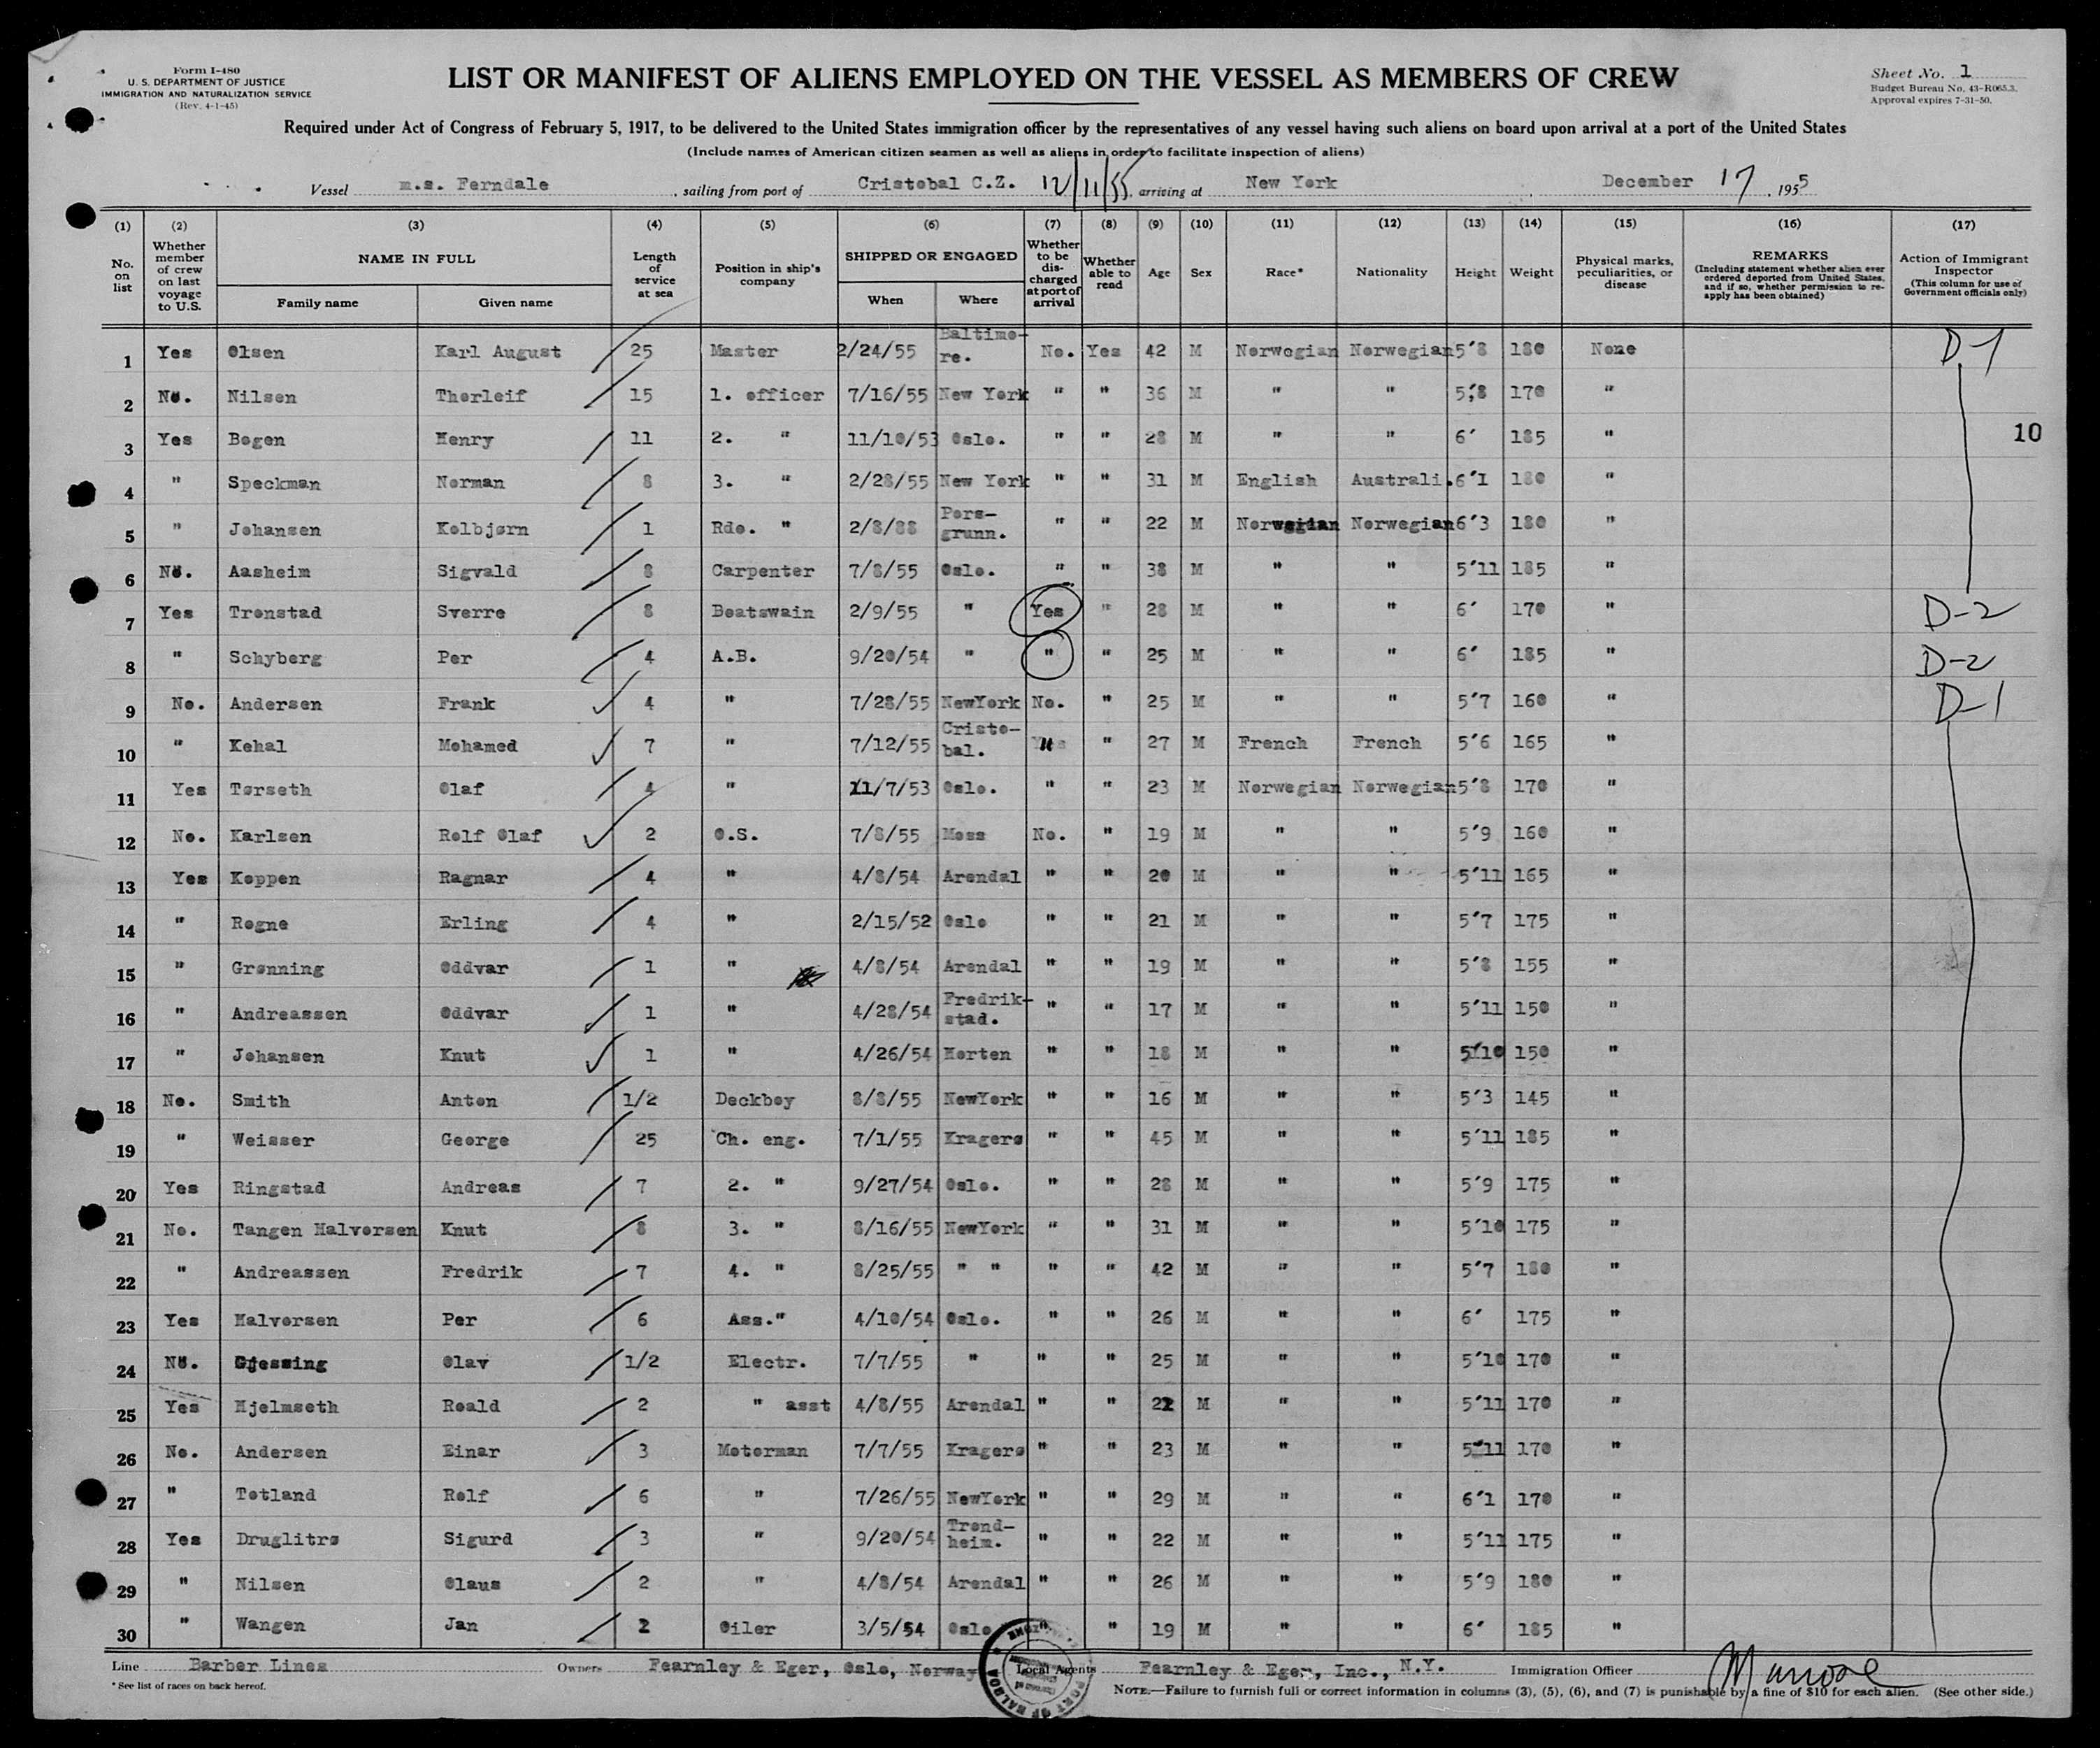 Form I-480
U. S. DEPARTMENT OF JUSTICE
IMMIGRATION AND NATURALIZATION SERVICE
(Rev. 4-1-45)
LIST OR MANIFEST OF ALIENS EMPLOYED ON THE VESSEL AS MEMBERS OF CREW
Sheet No. 1
Budget Bureau No. 43-R065.3.
Approval expires 7-31-50.
Required under Act of Congress of February 5, 1917, to be delivered to the United States immigration officer by the representatives of any vessel having such aliens on board upon arrival at a port of the United States
(Include names of American citizen seamen as well as aliens in order to facilitate inspection of aliens)
Vessel m.s. Ferndale, sailing from port of Cristobal C.Z. 12/11/55, arriving at New York, December 17, 1955
(1) (2) (3) (4) (5) (6) (7) (8) (9) (10) (11) (12) (13) (14) (15) (16) (17)
No. on list
Whether member of crew on last voyage to U.S.
NAME IN FULL
Family name
Given name
Length of service at sea
Position in ship's company
SHIPPED OR ENGAGED
When
Where
Whether to be discharged at port of arrival
Whether able to read
Age
Sex
Race*
Nationality
Height
Weight
Physical marks, peculiarities, or disease
REMARKS
(Including statement whether alien ever ordered deported from United States, and if so, whether permission to reapply has been obtained)
Action of Immigrant Inspector
(This column for use of Government officials only)
1 Yes Olsen Karl August 25 Master 2/24/55 Baltimo-re. No. Yes 42 M Norwegian Norwegian 5'8 180 None D-1
2 No. Nilsen Thorleif 15 1. officer 7/16/55 New York " " 36 M " " 5'8 170 "
3 Yes Bogen Henry 11 2. " 11/10/53 Oslo. " " 28 M " " 6' 185 " 10
4 " Speckman Norman 8 3. " 2/28/55 New York " " 31 M English Australi. 6'1 180 "
5 " Johansen Kolbjørn 1 Rdo. " 2/8/88 Pors-grunn. " " 22 M Norwegian Norwegian 6'3 180 "
6 No. Aasheim Sigvald 8 Carpenter 7/8/55 Oslo. " " 38 M " " 5'11 185 "
7 Yes Tronstad Sverre 8 Boatswain 2/9/55 " Yes " 28 M " " 6' 170 " D-2
8 " Schyberg Per 4 A.B. 9/20/54 " " " 25 M " " 6' 185 " D-2
9 No. Andersen Frank 4 " 7/28/55 NewYork No. " 25 M " " 5'7 160 " D-1
10 " Kehal Mohamed 7 " 7/12/55 Cristo-bal. " 27 M French French 5'6 165 "
11 Yes Tørseth Olaf 4 " 11/7/53 Oslo. " " 23 M Norwegian Norwegian 5'8 170 "
12 No. Karlsen Rolf Olaf 2 O.S. 7/8/55 Moss No. " 19 M " " 5'9 160 "
13 Yes Koppen Ragnar 4 " 4/8/54 Arendal " " 20 M " " 5'11 165 "
14 " Rogne Erling 4 " 2/15/52 Oslo " " 21 M " " 5'7 175 "
15 " Grønning Oddvar 1 " 4/8/54 Arendal " " 19 M " " 5'8 155 "
16 " Andreassen Oddvar 1 " 4/28/54 Fredrik-stad. " " 17 M " " 5'11 150 "
17 " Johansen Knut 1 " 4/26/54 Horten " " 18 M " " 5'10 150 "
18 No. Smith Anton 1/2 Deckboy 8/8/55 NewYork " " 16 M " " 5'3 145 "
19 " Weisser George 25 Ch. eng. 7/1/55 Kragerø " " 45 M " " 5'11 185 "
20 Yes Ringstad Andreas 7 2. " 9/27/54 Oslo. " " 28 M " " 5'9 175 "
21 No. Tangen Halvorsen Knut 8 3. " 8/16/55 NewYork " " 31 M " " 5'10 175 "
22 " Andreassen Fredrik 7 4. " 8/25/55 " " " " 42 M " " 5'7 180 "
23 Yes Halvorsen Per 6 Ass." 4/10/54 Oslo. " " 26 M " " 6' 175 "
24 No. Gjessing Olav 1/2 Electr. 7/7/55 " " " 25 M " " 5'10 170 "
25 Yes Hjelmseth Roald 2 " asst 4/8/55 Arendal " " 22 M " " 5'11 170 "
26 No. Andersen Einar 3 Motorman 7/7/55 Kragerø " " 23 M " " 5'11 170 "
27 " Totland Rolf 6 " 7/26/55 NewYork " " 29 M " " 6'1 170 "
28 Yes Druglitrø Sigurd 3 " 9/20/54 Trond-heim. " " 22 M " " 5'11 175 "
29 " Nilsen Olaus 2 " 4/8/54 Arendal " " 26 M " " 5'9 180 "
30 " Wangen Jan 2 Oiler 3/5/54 Oslo " 19 M " " 6' 185 "
Line Barber Lines Owners Fearnley & Eger, Oslo, Norway Local Agents Fearnley & Eger, Inc., N.Y. Immigration Officer
*See list of races on back hereof.
NOTE.—Failure to furnish full or correct information in columns (3), (5), (6), and (7) is punishable by a fine of $10 for each alien. (See other side.)
PORT OF BALBOA